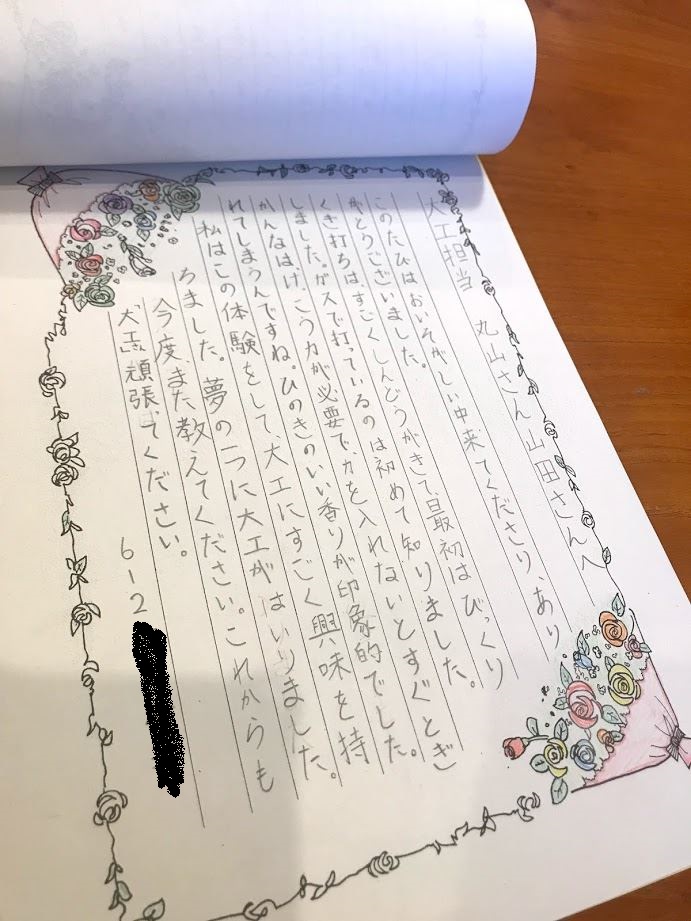 大工担当　丸山さん山田さんへ
このたびはおいそがしい中来てくださり、あり
がとうございました。
くぎ打ちは、すごくしんどうがきて、最初はびっくり
しました。ガスで打っているのは初めて知りました。
かんなはけっこう力が必要で、力を入れないとすぐとぎ
れてしまうんですね。ひのきのいい香りが印象的でした。
私はこの体験をして、大工にすごく興味を持
ちました。夢の一つに大工がはいりました。
今度、また教えてください。これからも
大工さん頑張ってください。
6-2